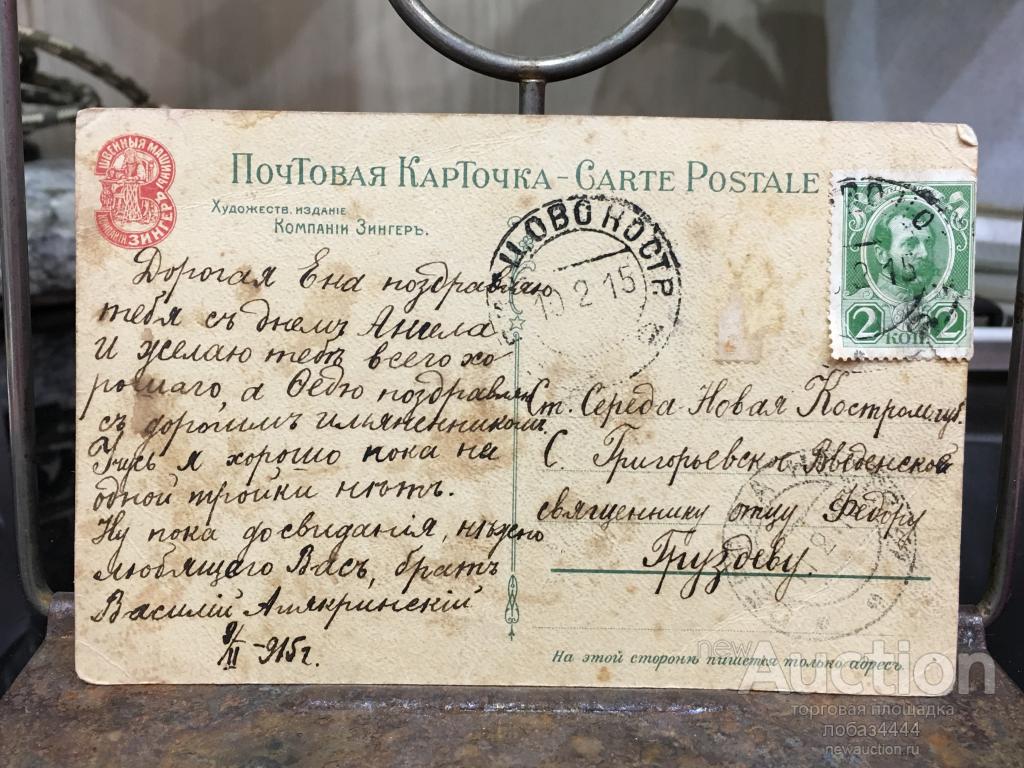 ШВЕЙНЫЯ МАШИНЫ
КОМПАНІИ ЗИНГЕРЪ
ПОЧТОВАЯ КАРТОЧКА – CARTE POSTALE
ХУДОЖЕСТВ. ИЗДАНІЕ
КОМПАНІИ ЗИНГЕРЪ.
ЦОВО КОСТР.
10 2 15
2 КОП. 2
Дорогая Ена поздравляю
тебя съ днемъ Ангела
И желаю тебѣ всего хо
рошаго, а Ѳедю поздравляю
съ дорогимъ имянинникомъ.
Учусь я хорошо пока на
одной тройки нѣтъ.
Ну пока досвиданія, нѣжно
любящего Васъ, братъ
Василій Атякринскій
9/II –915 г.
Ст. Середа-Новая Костром. губ.
С. Григорьевское Введенской
священнику отцу Федору
Груздеву.
На этой сторонѣ пишется только адресъ.
newAuction
торговая площадка
лобаз4444
newauction.ru